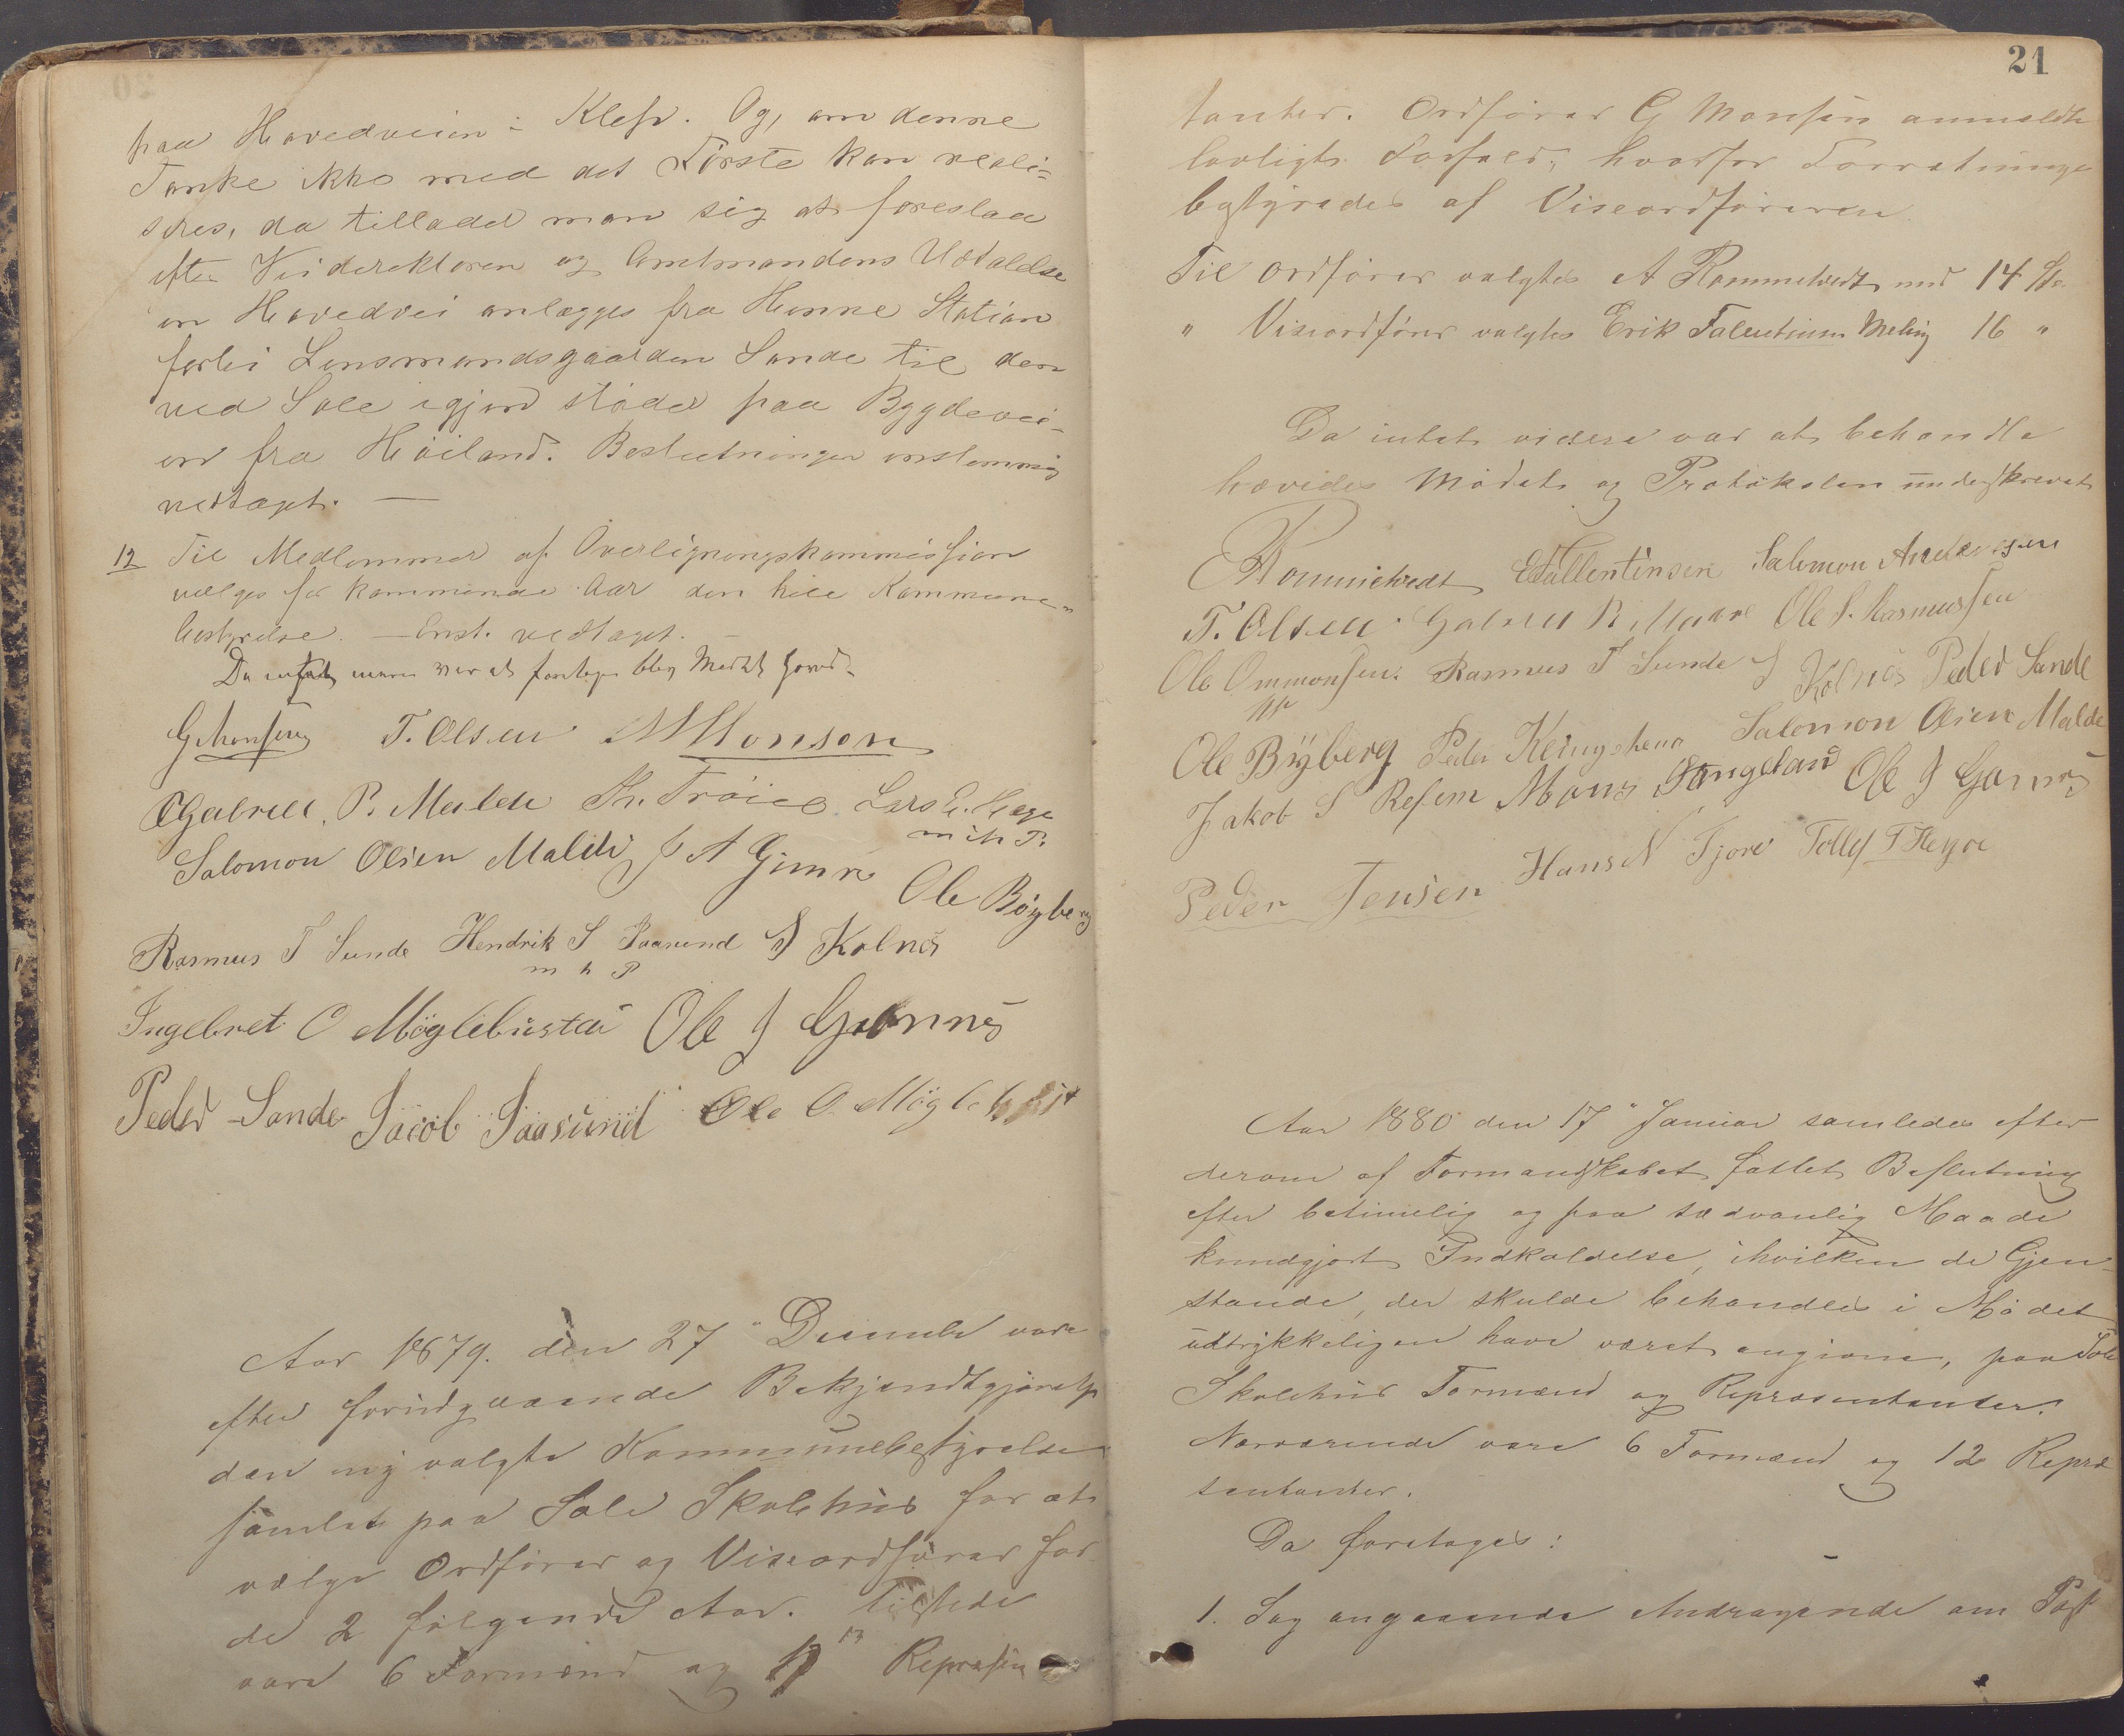 paa Hovedveien i Klep. Og, om denne
Tanke ikke med det Første kan reali-
seres, da tillader man sig at foreslaa
efter Veidirektøren og Amtmandens Udtalelse
en Hovedvei anlægges fra Hinne Station
forbi Lensmandsgaarden Sande til den
ved Sole igjen støder paa Bygdevei-
en fra Høiland. Beslutningen enstemmig
vedtaget. —
12 Til Medlemmer af Overligningskommission
vælges for kommende Aar den hele Kommune-
bestyrelse. — Enst. vedtaget. —
Da intet mere var at foretage blev Mødet hævet.
G Monsen T. Olsen M Monson
Gabriel. P. Malde Th. Trøice Lars E. Hæge
m ih P.
Salomon Olsen Malde J A Gimre Ole Bøyberg
Rasmus T Sunde Hendrik S Joasund J Kolnes
m h P
Ingebret O Møglebustad Ole J Grannes
Peder Sande Jacob Jaasund Ole O Møgleb
Aar 1879. den 27" December vare
efter foridgaaende Bekjendtgjørelse
den ny valgte Kommunebestyrelse
samlet paa Sole Skolehus for at
vælge Ordfører og Viseordfører for
de 2 følgende Aar. Tilstede
vare 6 Formænd og 13 Repræsen
21
tanter. Ordfører G Monsen anmeldte
lovligt Forfald, hvorfor Forretninge
bestyredes af Viseordføreren
Til Ordfører valgtes A Rommetvedt med 14 St.
" Viseordfører valgtes Erik Falentinsen Meling 16 "
Da intet videre var at behandle
hævedes Mødet og Protokolen underskrevet
Rommetvedt E Fallentinsen Salomon Andersen
T. Olsen Gabriel P. Malde Ole S. Rasmussen
Ole Ommonsen Rasmus T Sunde J Kolnes Peder Sande
Ole Byberg Peder Salomon Olsen Malde
Jakob S Refem Mons Stangeland Ole J Grannes
Peder Jensen Hans N Fjore Tollef T Heyoe
Aar 1880 den 17" Januar samledes efter
derom af Formandskabet fattet Beslutning
efter betimelig og paa sædvanlig Maade
kundgjort Indkaldelse, ihvilken de Gjen-
stande, der skulde behandles i Mødet
udtrykkeligen have været angivne, paa Sole
Skolehus Formænd og Repræsentanter.
Nærværende vare 6 Formænd og 12 Repræ
sentanter.
Da foretoges:
1. Sag angaaende Andragende om Post